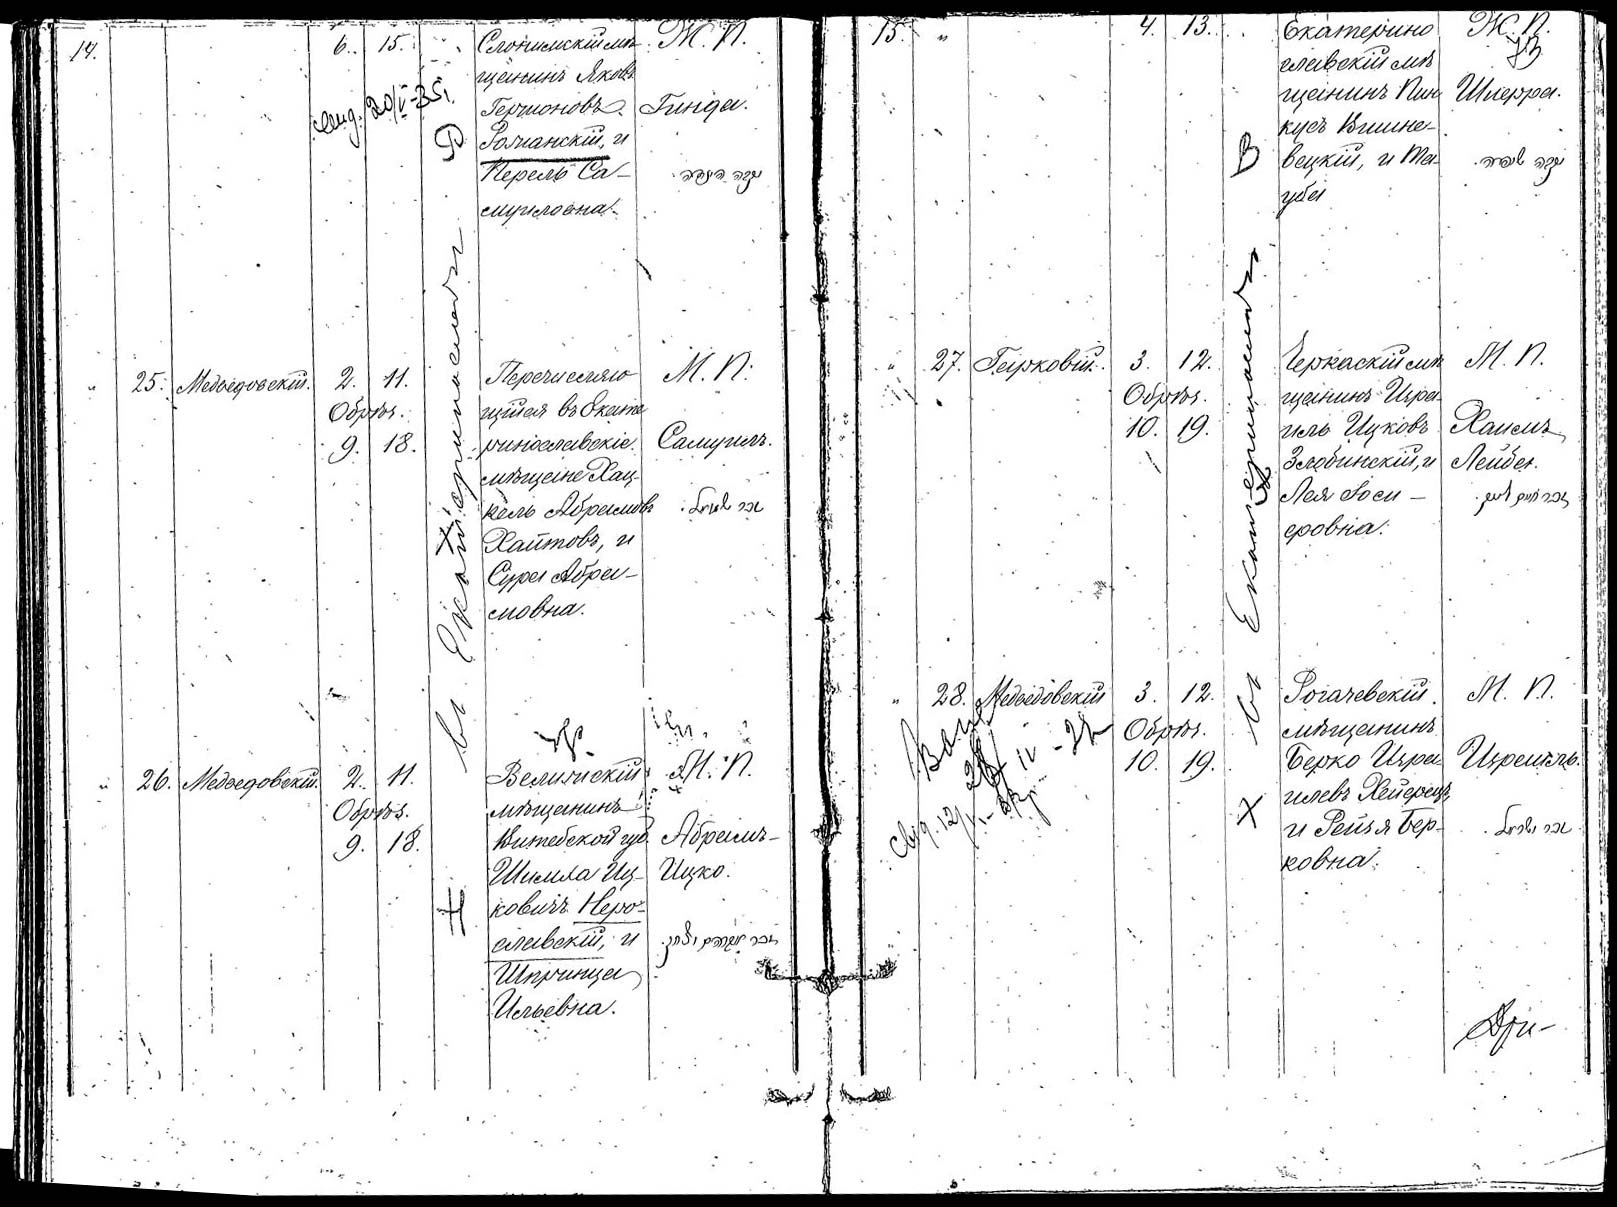 14.
6. 15.
Слонимскiй мѣ-
щанинъ Яковъ
Гершоновъ
Романскiй, и
Перель Са-
муиловна.
Ж. П.
Гинда.
25. Медведовскiй.
2. 11.
Обрѣз.
9. 18.
Перечисляю
щiйся въ Екате
ринославскiе
мѣщане Хац-
кель Абрамовъ
Хаитовъ, и
Сура Абра-
мовна.
М. П.
Самуилъ.
26. Медведовскiй.
2. 11.
Обрѣз.
9. 18.
Велижскiй
мѣщанинъ
Витебской губ.
Шимла Иц-
ковичъ Неро-
славскiй, и
Шпринца
Ильевна.
М. П.
Абрамъ-
Ицко.
въ Екатеринославѣ
15. "
4. 13.
Екатерино
славскiй мѣ
щанинъ Пин
кусъ Вишне-
вецкiй, и Та-
уба
Ж. П.
Шперра.
" 27.
3. 12.
Обрѣз.
10. 19.
Черкаскiй мѣ
щанинъ Изра
иль Ицковъ
Злобинскiй, и
Лея Iоси-
фовна.
М. П.
Хаимъ
Лейба.
" 28. Медведовскiй
3. 12.
Обрѣз.
10. 19.
Рогачевскiй
мѣщанинъ
Берко Изра
илевъ
и Рейзя Бер-
ковна.
М. П.
Израиль.
въ Екатеринославѣ